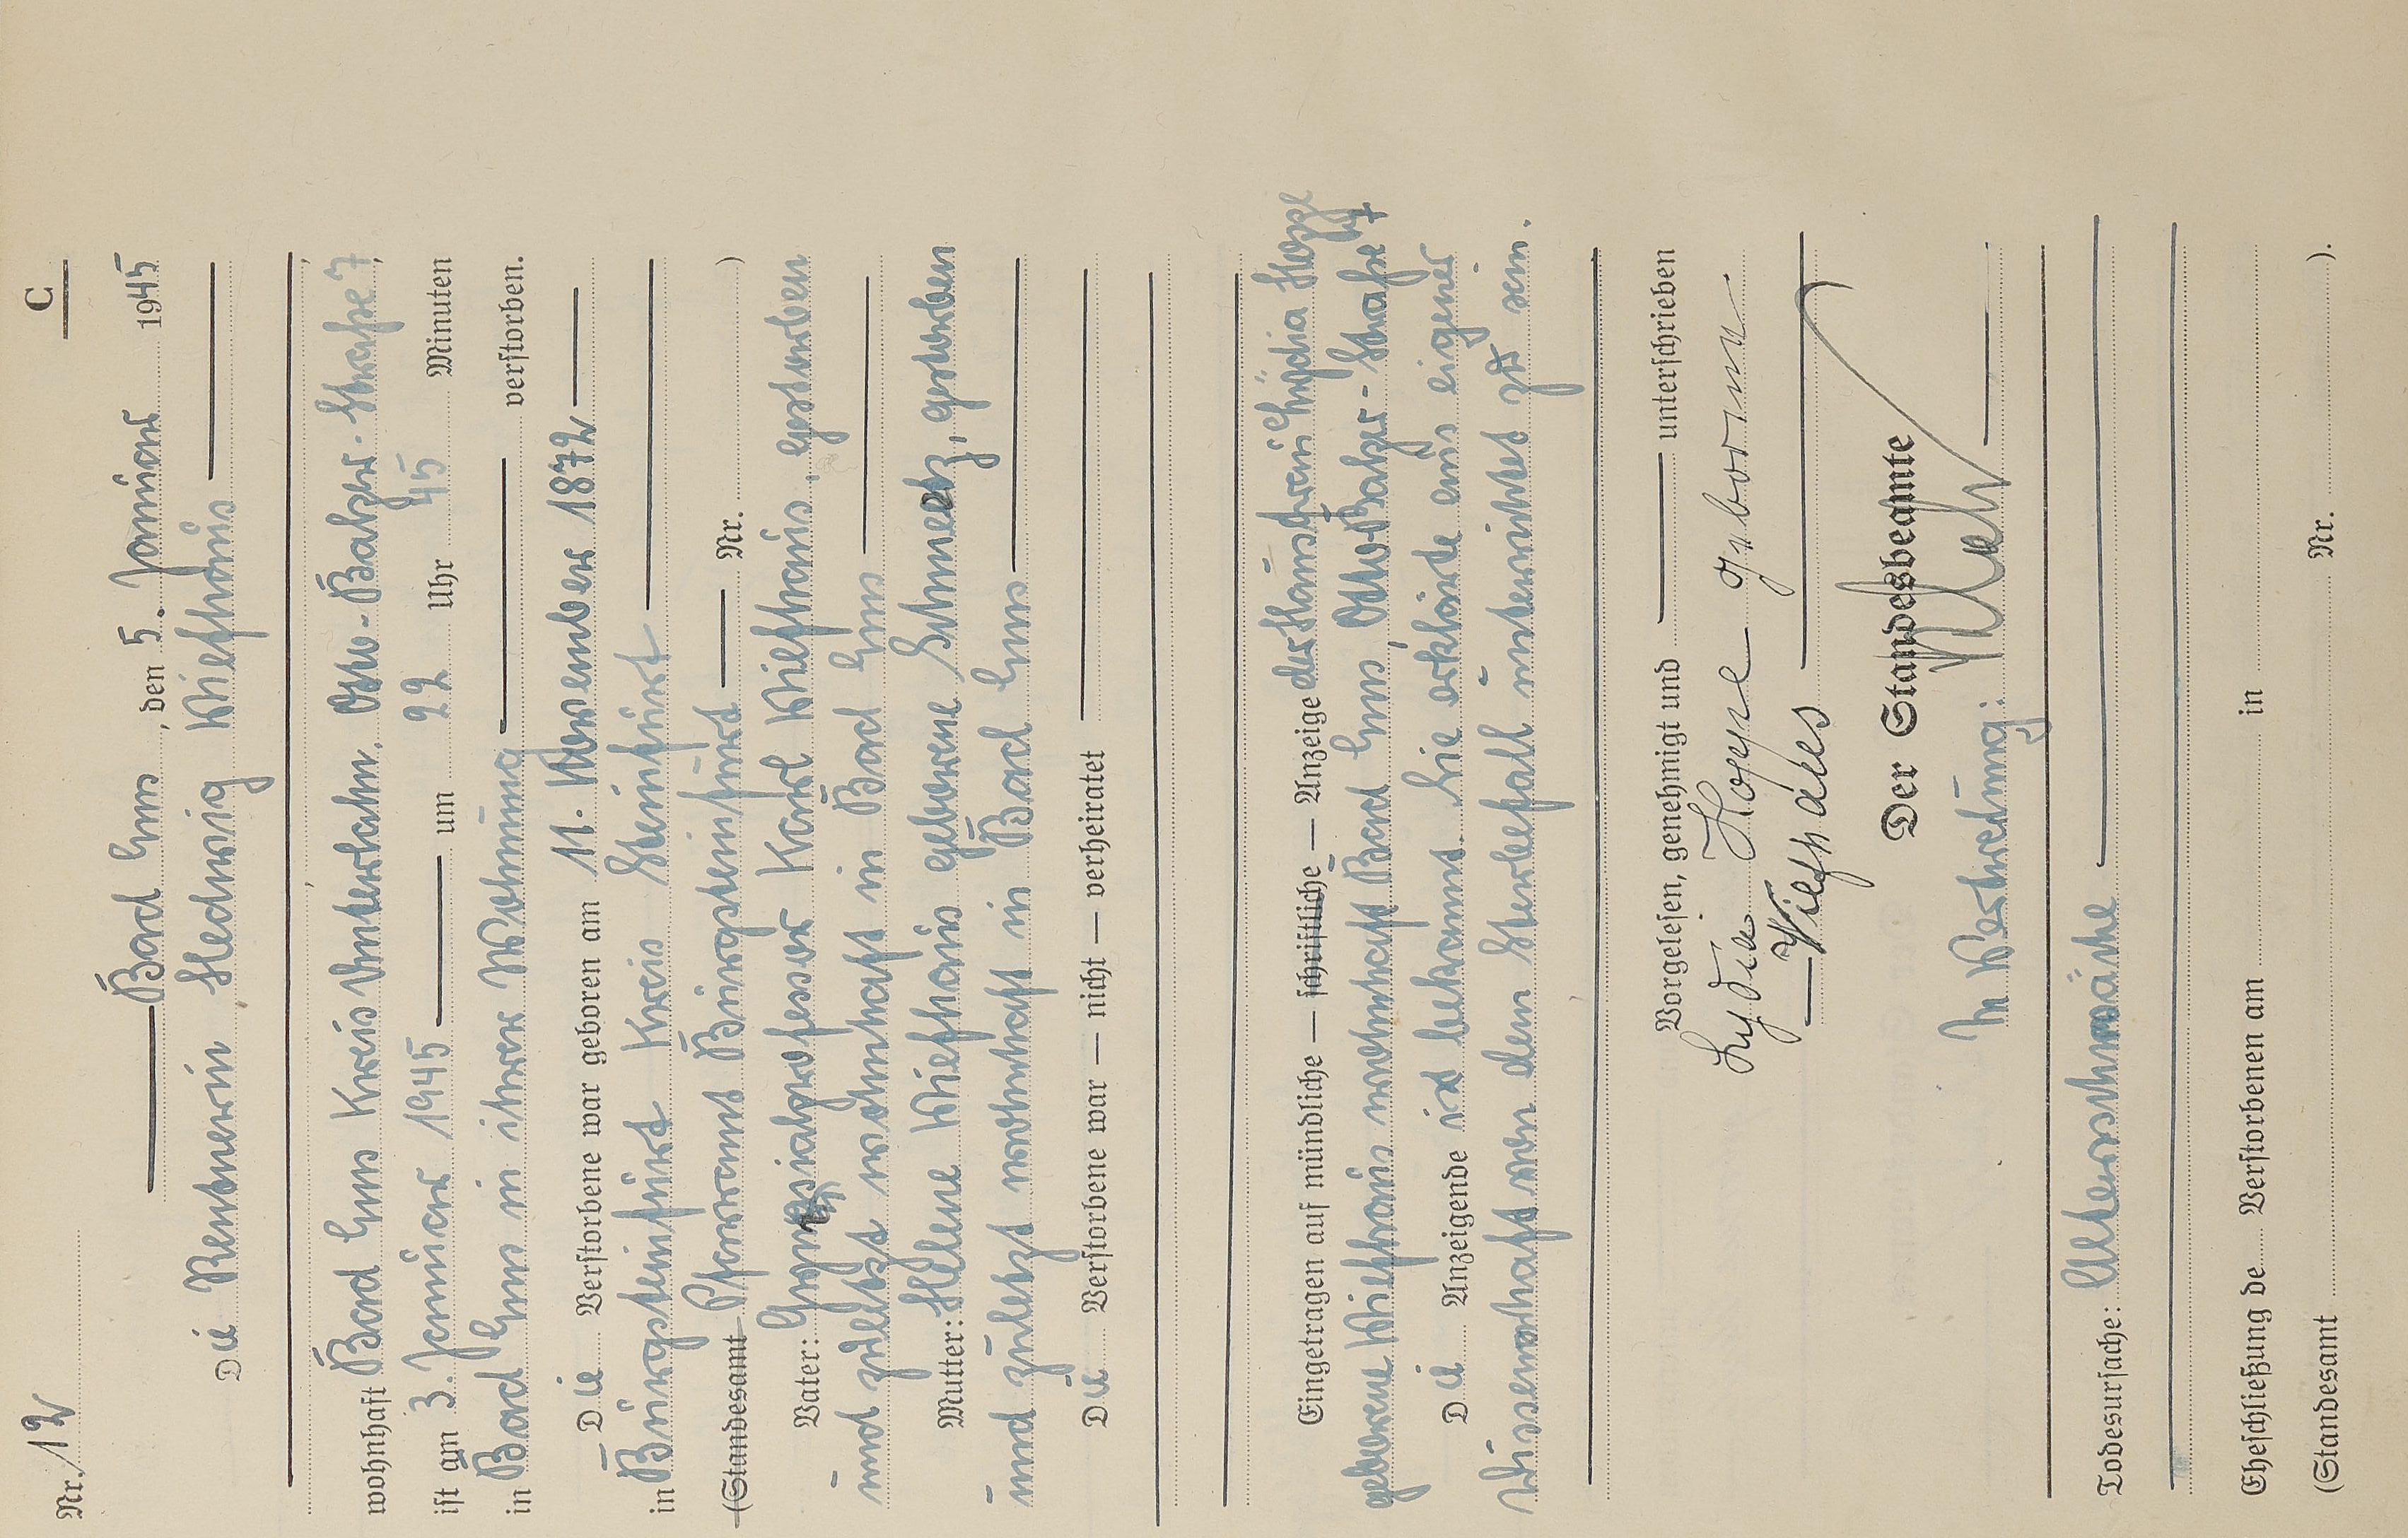 C
Nr. 12
Bad Ems, den 5. Januar 1945
Die Rentnerin Hedwig Viefhaus
wohnhaft Bad Ems Kreis Unterlahn, Otto-Balzer-Straße 7,
ist am 3. Januar 1945 um 22 Uhr 45 Minuten
in Bad Ems in ihrer Wohnung verstorben.
Die Verstorbene war geboren am 11. November 1872
in Burgsteinfurt Kreis Steinfurt
(Standesamt Pfarramt Burgsteinfurt Nr. )
Vater: Gymnasialprofessor Karl Viefhaus, gestorben
und zuletzt wohnhaft in Bad Ems
Mutter: Helene Viefhaus geborene Schmedz, gestorben
und zuletzt wohnhaft in Bad Ems
Die Verstorbene war — nicht — verheiratet
Eingetragen auf mündliche — schriftliche — Anzeige der Hausfrau Lydia Hoppe
geborene Viefhaus wohnhaft Bad Ems, Otto-Balzer-Straße 7
Die Anzeigende ist bekannt. Sie erklärte aus eigener
Wissenschaft von dem Sterbefall unterrichtet zu sein.
Vorgelesen, genehmigt und unterschrieben
Lydia Hoppe geborene
Viefhaus
Der Standesbeamte
In Vertretung:
Todesursache: Altersschwäche
Eheschließung de Verstorbenen am in
(Standesamt Nr. ).